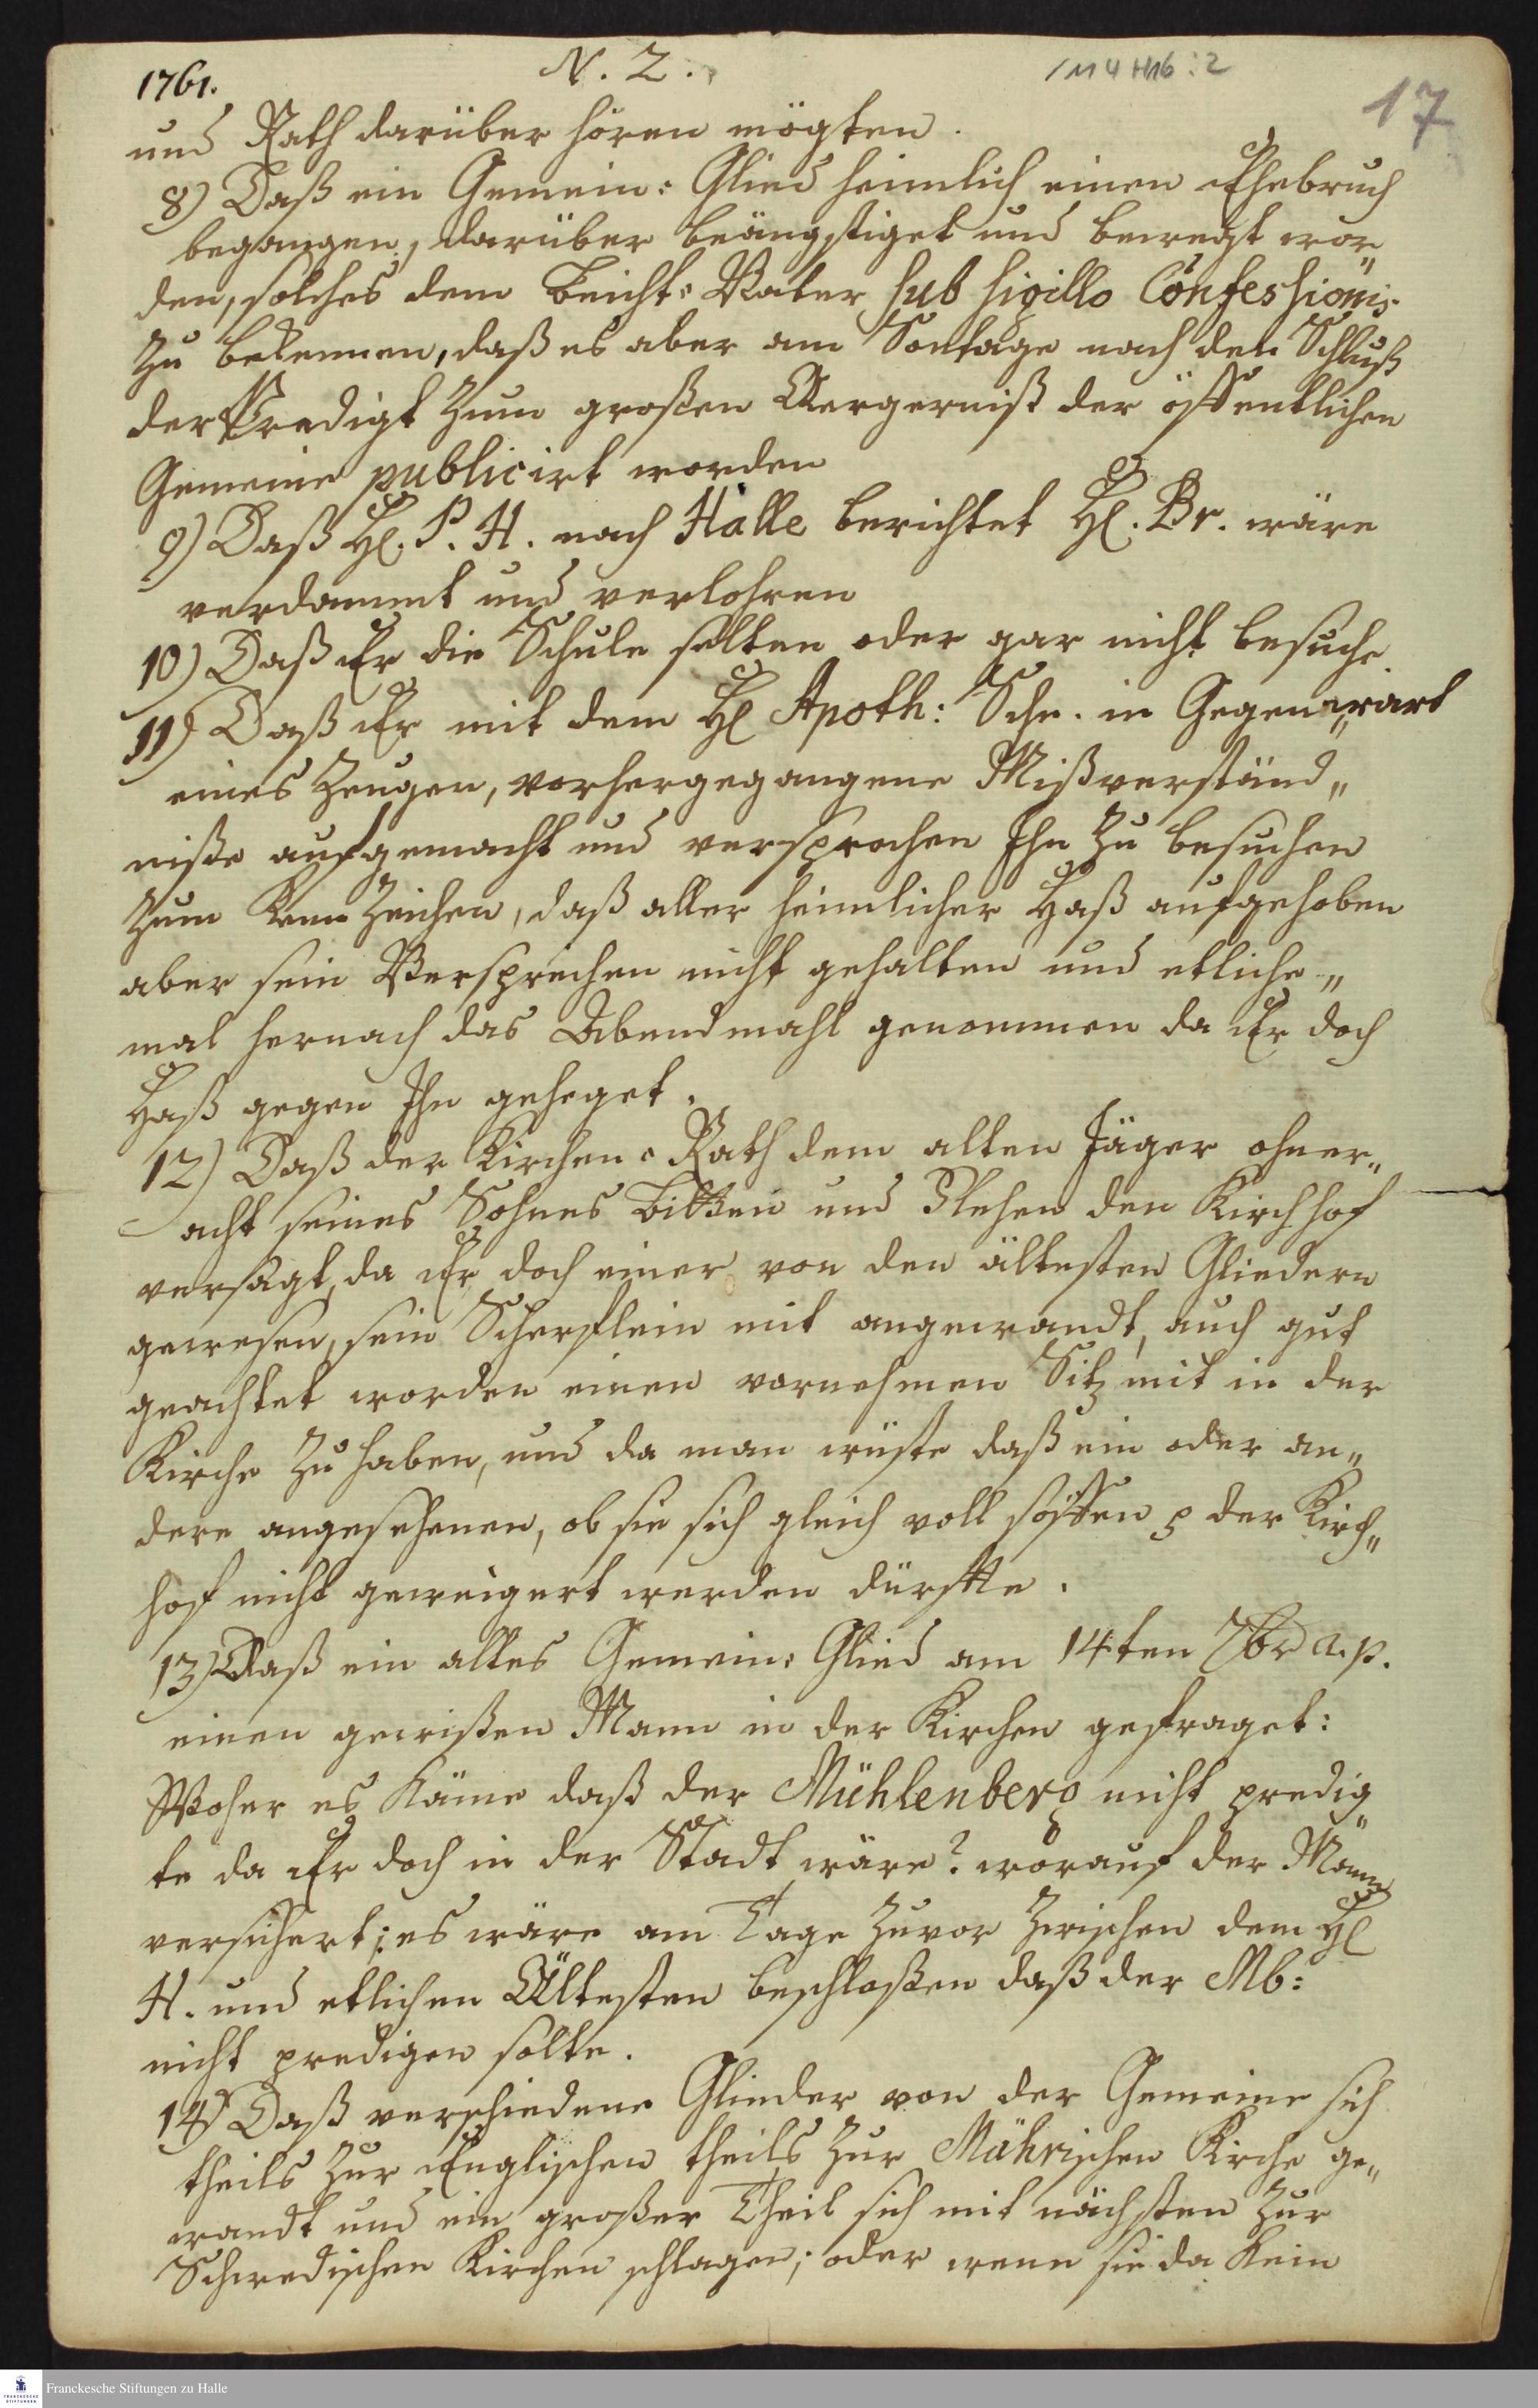 1761.
N. 2.
/M 4 H16 : 2
17
und Rath darüber hören mögten.
8) Daß ein Gemein: Glied heimlich einen Ehebruch
begangen, darüber beängstiget und bewegt wor„
den, solches dem Beicht: Vater sub sigillo Confessionis
zu bekennen, daß es aber am Sontage nach den Schluß
der Predigt zum großen Aergerniß der öffentlichen
Gemeine publicirt worden
9) Daß H. P. H. nach Halle berichtet H. Br. wäre
verdammt und verlohren
10) Daß Er die Schule selten oder gar nicht besuche
11) Daß Er mit dem H Apoth: Schr. in Gegen„wart
eines Zeugen, vorhergegangene Mißverständ„
niße aufgemacht und versprochen Ihn zu besuchen
zum Kenn Zeichen, daß aller heimlicher Haß aufgehoben
aber sein Versprechen nicht gehalten und etliche„
mal hernach das Abendmahl genommen da Er doch
Haß gegen Ihn geheget.
12) Daß der Kirchen: Rath dem alten Jäger ohner„
acht seines Sohnes Bitten und Flehen den Kirchhof
versagt, da Er doch einer von den ältesten Gliedern
gewesen, sein Scherflein mit angewandt, auch gut
geachtet worden einen vornehmen Sitz mit in der
Kirche zu haben, und da man wüste daß ein oder an„
dere angesehenen, ob sie sich gleich voll söffen p der Kirch„
hof nicht geweigert werden dürffte.
13) Daß ein altes Gemein: Glied am 14ten 7br a. p.
einen gewißen Mann in der Kirchen gefraget:
Woher es käme daß der Mühlenberg nicht predig„
te da Er doch in der Stadt wäre? worauf der Mann
versichert; es wäre am Tage zuvor zwischen dem H
H. und etlichen Ältesten beschloßen daß der Mb:
nicht predigen solte.
14) Daß verschiedene Glieder von der Gemeine sich
theils zur Englischen theils zur Mährischen Kirche ge„
wandt und ein großer Theil sich mit nächsten zur
Schwedischen Kirchen schlagen; oder wenn sie da kein
Franckesche Stiftungen zu Halle